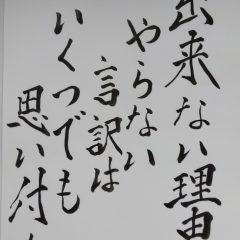 出来ない理由
やらない
言訳は
いくつでも
思い付